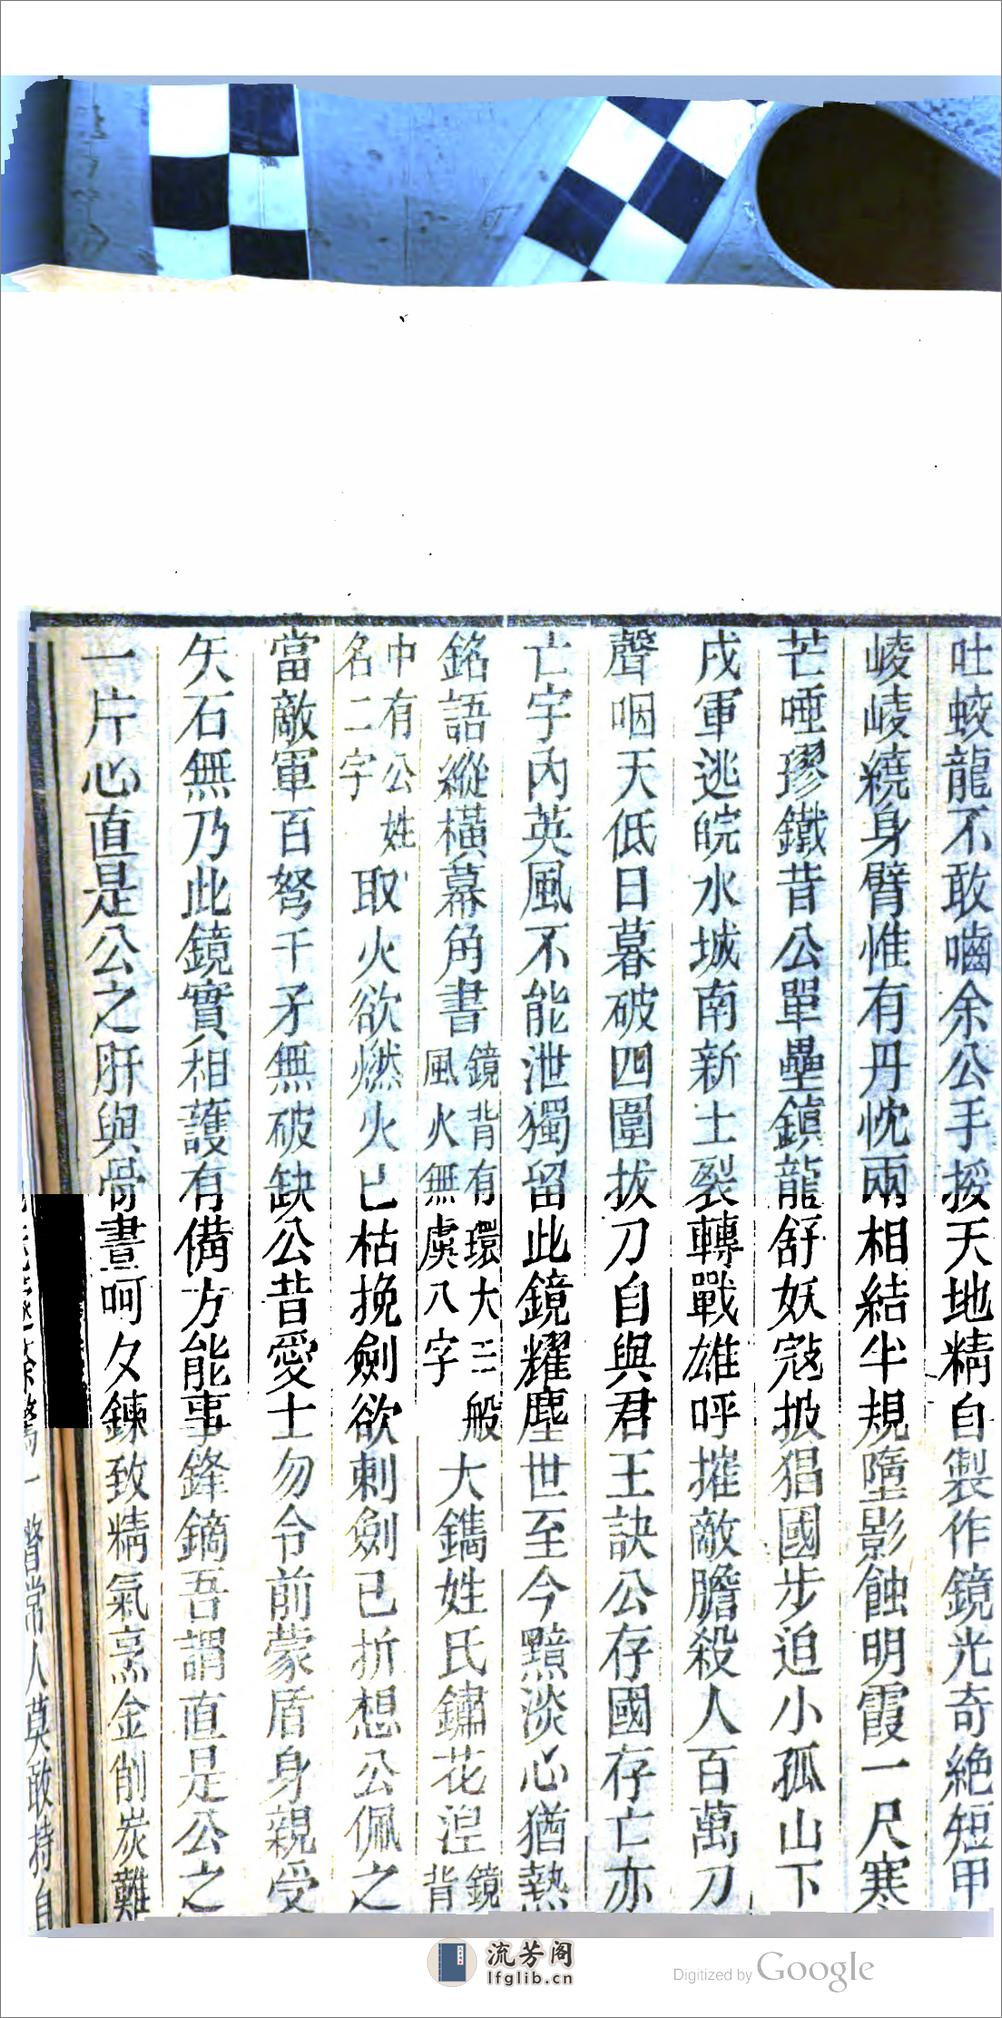 吐蛟龍不敢嚙余公手援天地精自製作鏡光奇絶短甲
崚崚繞身臂惟有丹忱兩相結半規墮影蝕明霞一尺寒
芒唾璆鐵昔公單壘鎮龍舒妖寇披猖國步迫小孤山下
戍軍逃皖水城南新土裂轉戰雄呼摧敵膽殺人百萬刀
聲咽天低日暮破四圍拔刀自與君王訣公存國存亡亦
亡宇內英風不能泄獨留此鏡耀塵世至今黯淡心猶熱
銘語縱橫幕角書鏡背有環大三般風火無虞八字大鐫姓氏鏽花湼鏡背
中有公姓名二字取火欲燃火已枯挽劍欲刺劍已折想公佩之
當敵軍百弩千矛無破缺公昔愛士勿令前蒙盾身親受
矢石無乃此鏡實相護有備方能事鋒鏑吾謂直是公之
一片心直是公之肝與骨晝呵夕鍊致精氣烹金削炭難
常人莫敢持自
流芳阁
lfglib.cn
Digitized by Google